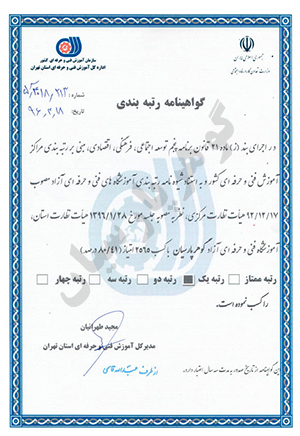 جمهوری اسلامی ایران
وزارت تعاون، کار و رفاه اجتماعی
سازمان آموزش فنی و حرفه ای کشور
اداره کل آموزش فنی و حرفه ای استان تهران
شماره:
تاریخ: ۹۶.۲.۱۸
گواهینامه رتبه بندی
در اجرای بند (ز) ماده ۲۱ قانون برنامه پنجم توسعه اجتماعی، فرهنگی، اقتصادی، مبنی بر رتبه بندی مراکز
آموزش فنی و حرفه ای کشور و به استناد شیوه نامه رتبه بندی آموزشگاه های فنی و حرفه ای آزاد مصوب
۹۲/۱۲/۱۷ هیأت نظارت مرکزی، نظر به مصوبه جلسه مورخ ۱۳۹۶/۱/۲۸ هیأت نظارت استان،
آموزشگاه فنی و حرفه ای آزاد گوهر پارسیان با کسب ۲۵۶۵ امتیاز (۸۰/۴۱ درصد)
رتبه ممتاز رتبه یک رتبه دو رتبه سه رتبه چهار
را کسب نموده است.
مجید طهرانیان
مدیرکل آموزش فنی و حرفه ای استان تهران
از طرف
این گواهینامه از تاریخ صدور به مدت سه سال اعتبار دارد.